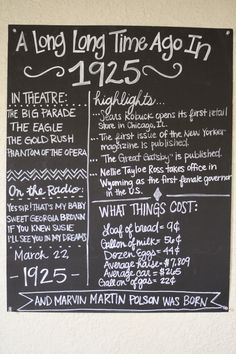 A Long Long Time Ago In
1925
IN THEATRE:
THE BIG PARADE
THE EAGLE
THE GOLD RUSH
PHANTOM OF THE OPERA
On the Radio:
YES SIR! THAT'S MY BABY
SWEET GEORGIA BROWN
IF YOU KNEW SUSIE
I'LL SEE YOU IN MY DREAMS
March 22,
-1925-
highlights...
...Sears Robuck opens its first retail
Store in Chicago, Il.
...The first issue of the New Yorker
magazine is published.
..."The Great Gatsby" is published.
...Nellie Taylor Ross takes office in
Wyoming as the first female governor
in the U.S.
WHAT THINGS COST:
Loaf of bread= 9¢
Gallon of milk= 56¢
Dozen Eggs= 44¢
Average house= $7,809
Average car= $265
Gallon of gas= 22¢
AND MARVIN MARTIN POLSON WAS BORN